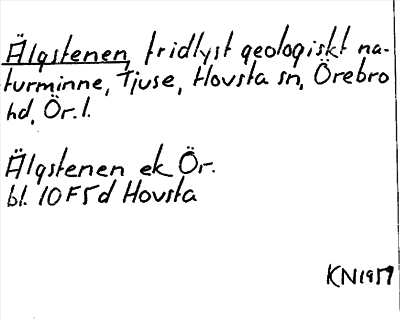 Älgstenen, fridlyst geologiskt na-
turminne, Tjuse, Hovsta sn, Örebro
hd, Ör. l.
Älgstenen ek Ör.
bl. 10F5d Hovsta
KN1959